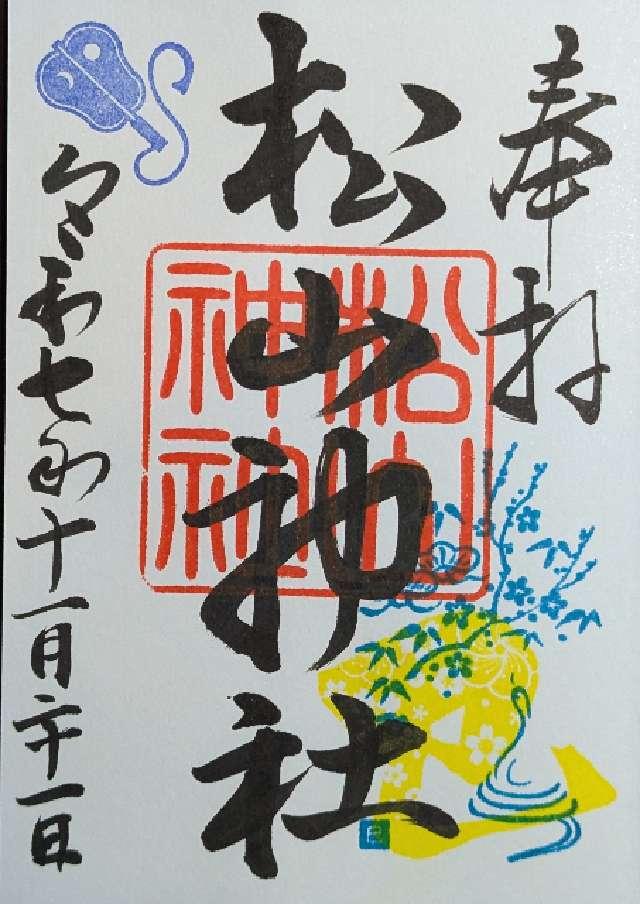 奉拝
松山神社
松山神社
令和七年十一月二十一日
巳